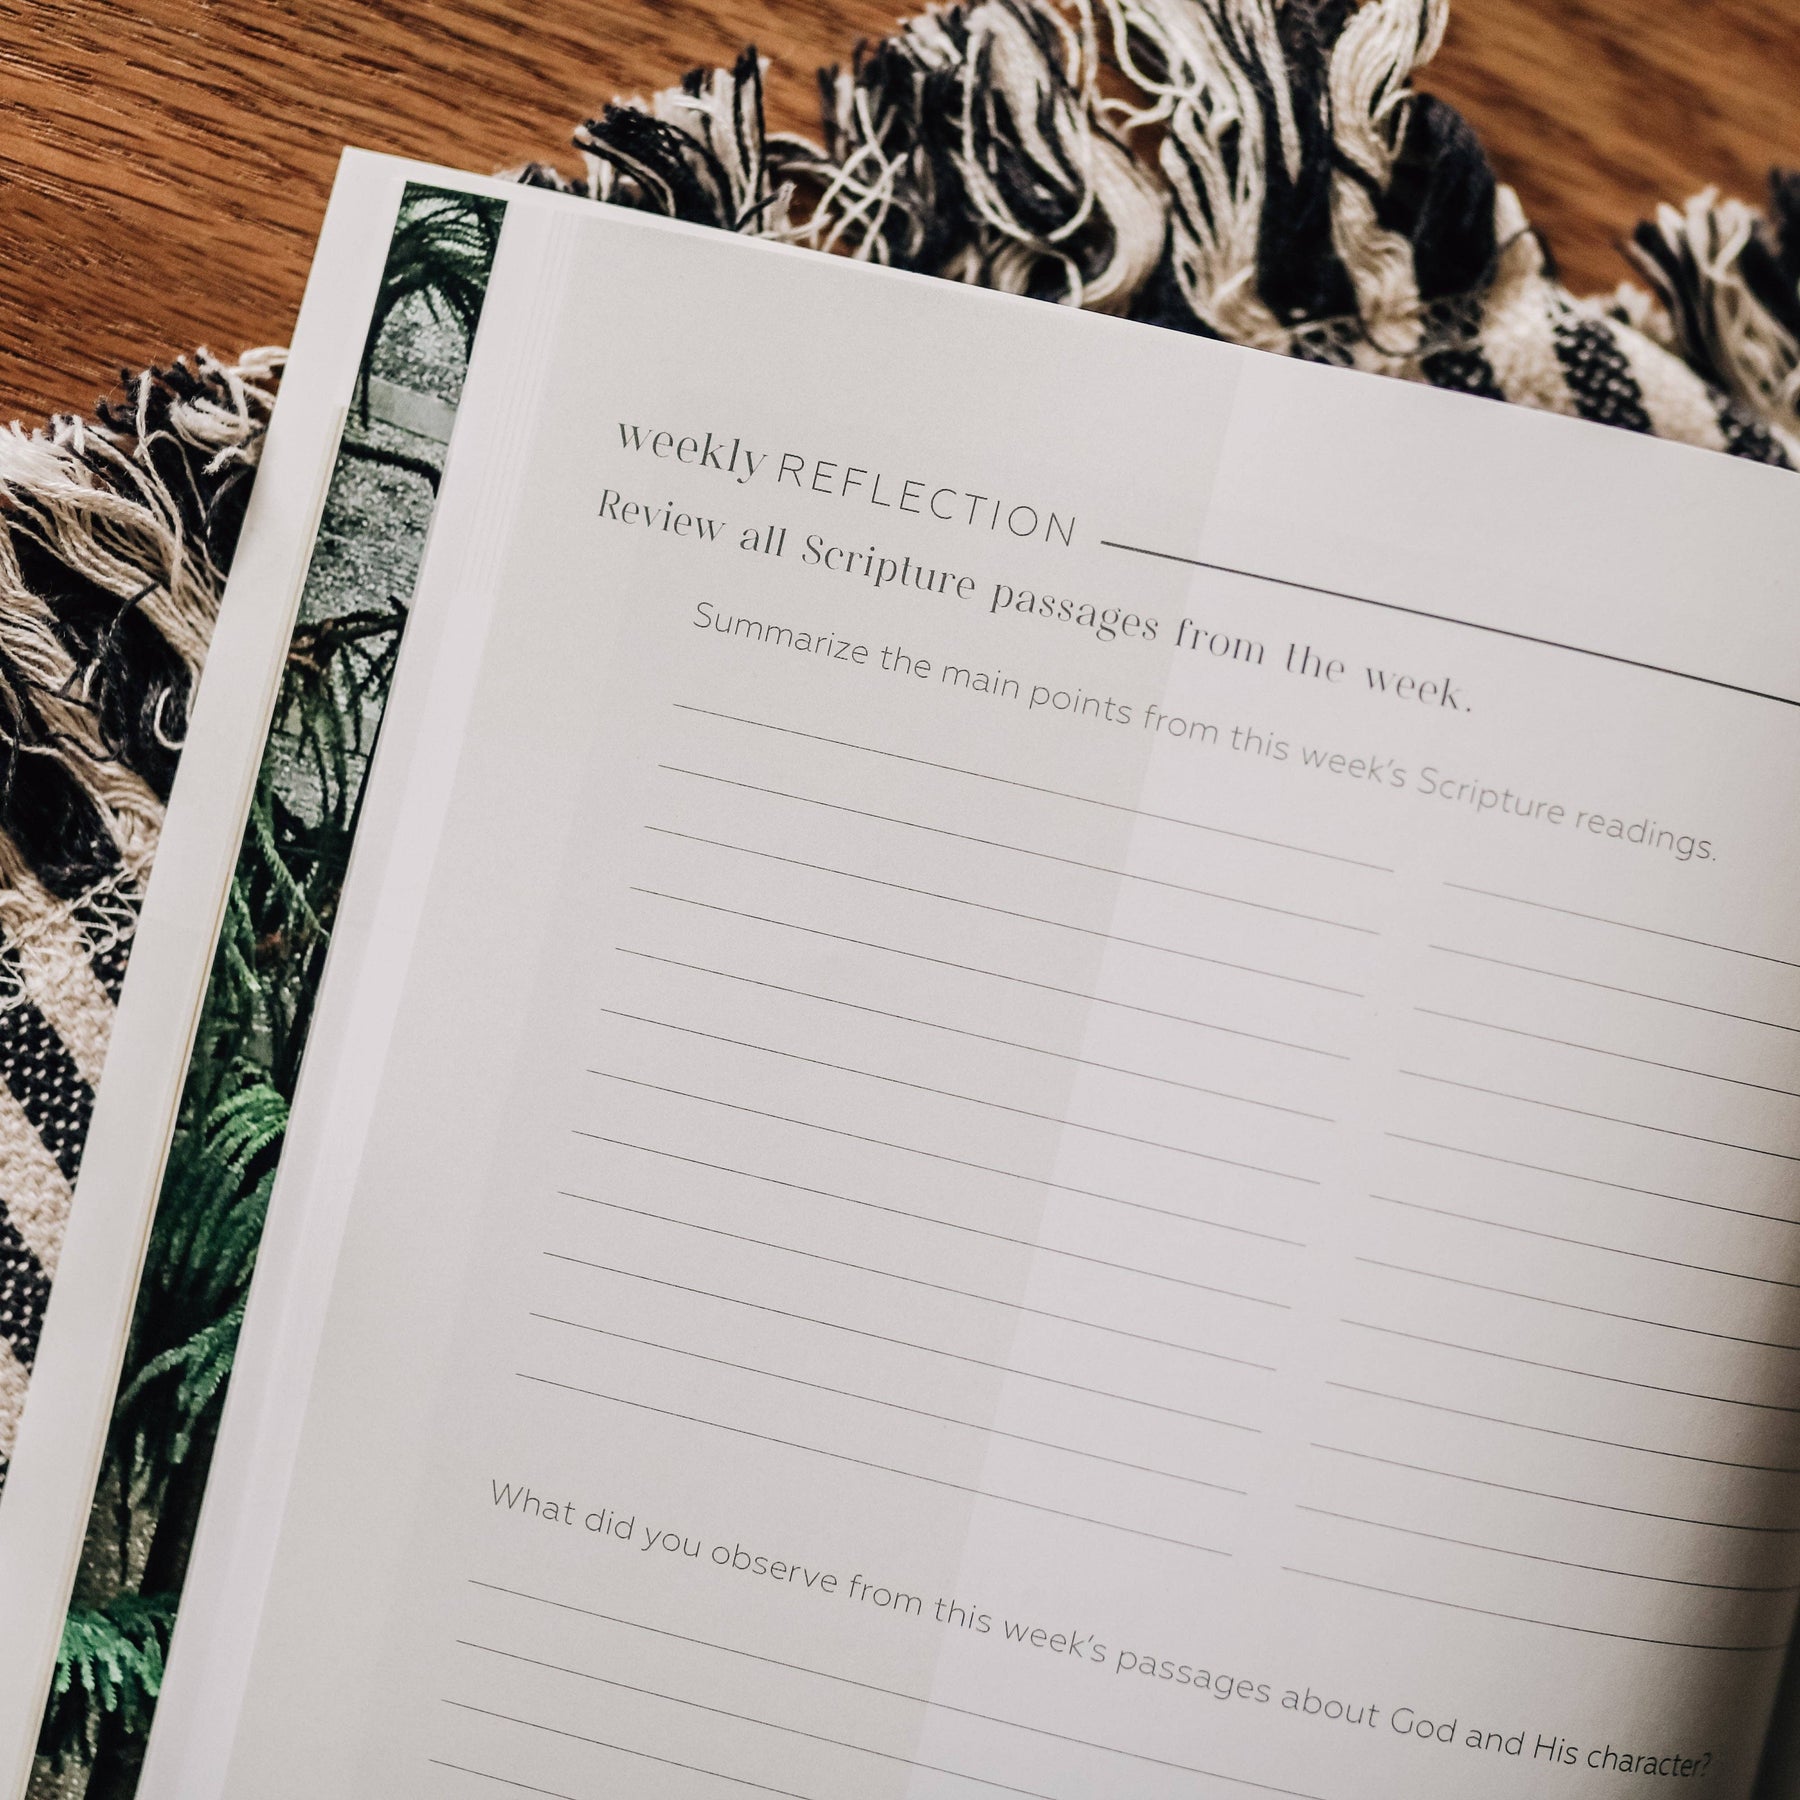 weekly REFLECTION
Review all Scripture passages from the week.
Summarize the main points from this week's Scripture readings.
What did you observe from this week's passages about God and His character?